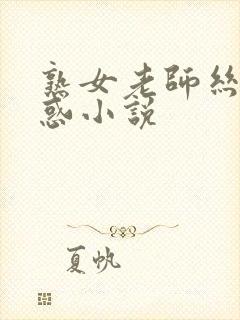 熟女老師絲
惑小說
夏帆